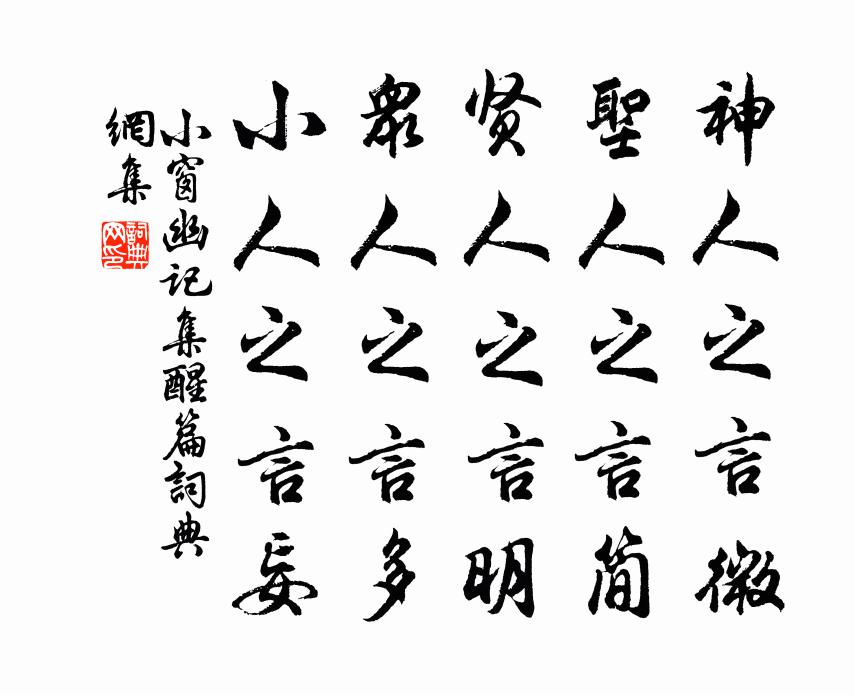 神人之言微
聖人之言简
贤人之言明
眾人之言多
小人之言妄
小窗幽记集醒篇詞典
網集
詞典
网印